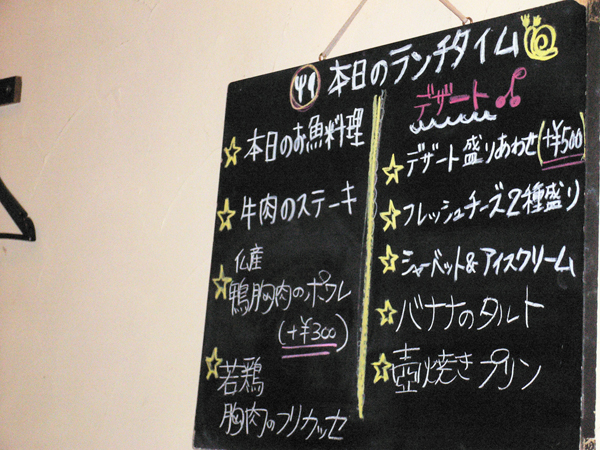 本日のランチタイム
本日のお魚料理
牛肉のステーキ
仏産
鴨胸肉のポワレ
(+¥300)
若鶏
胸肉のフリカッセ
デザート
デザート盛りあわせ(+¥500)
フレッシュチーズ2種盛り
シャーベット&アイスクリーム
バナナのタルト
壺焼きプリン